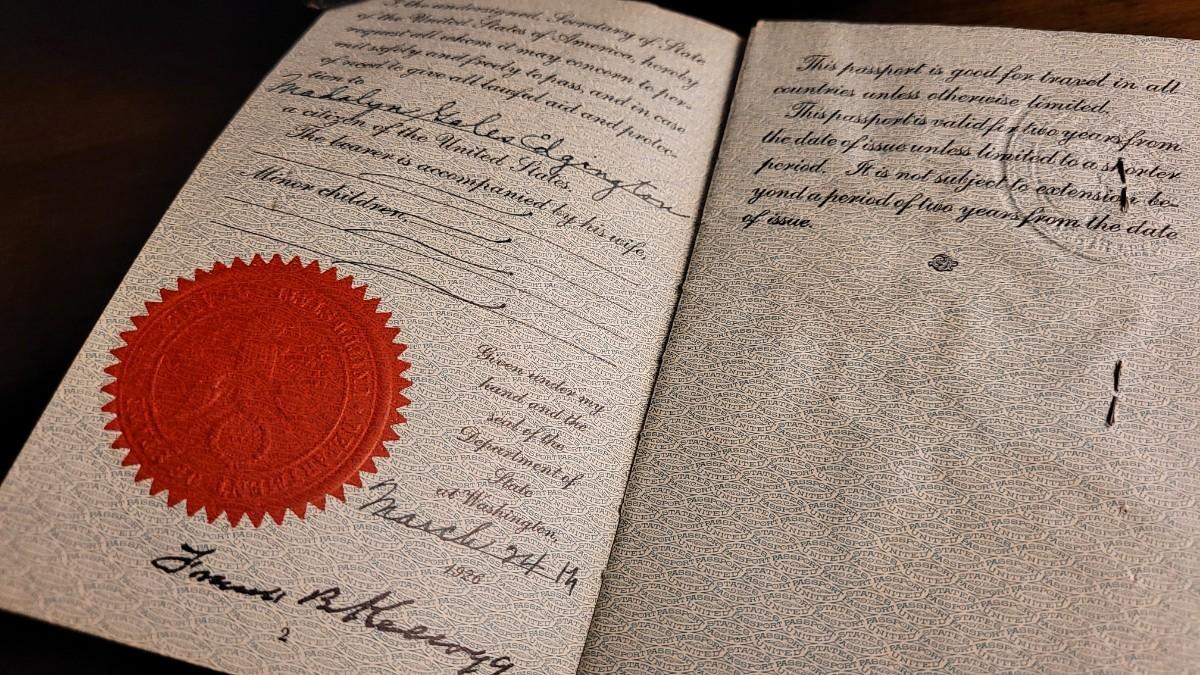 I the undersigned, Secretary of State
of the United States of America, hereby
request all whom it may concern to per-
mit safely and freely to pass, and in case
of need to give all lawful aid and protec-
tion to
Madalyn Gales Edgington
a citizen of the United States.
The bearer is accompanied by his wife,
Minor children,
Given under my
hand and the
seal of the
Department of
State
at Washington,
March 24th
1926
Frank B Kellogg
2
This passport is good for travel in all
countries unless otherwise limited.
This passport is valid for two years from
the date of issue unless limited to a shorter
period. It is not subject to extension be-
yond a period of two years from the date
of issue.